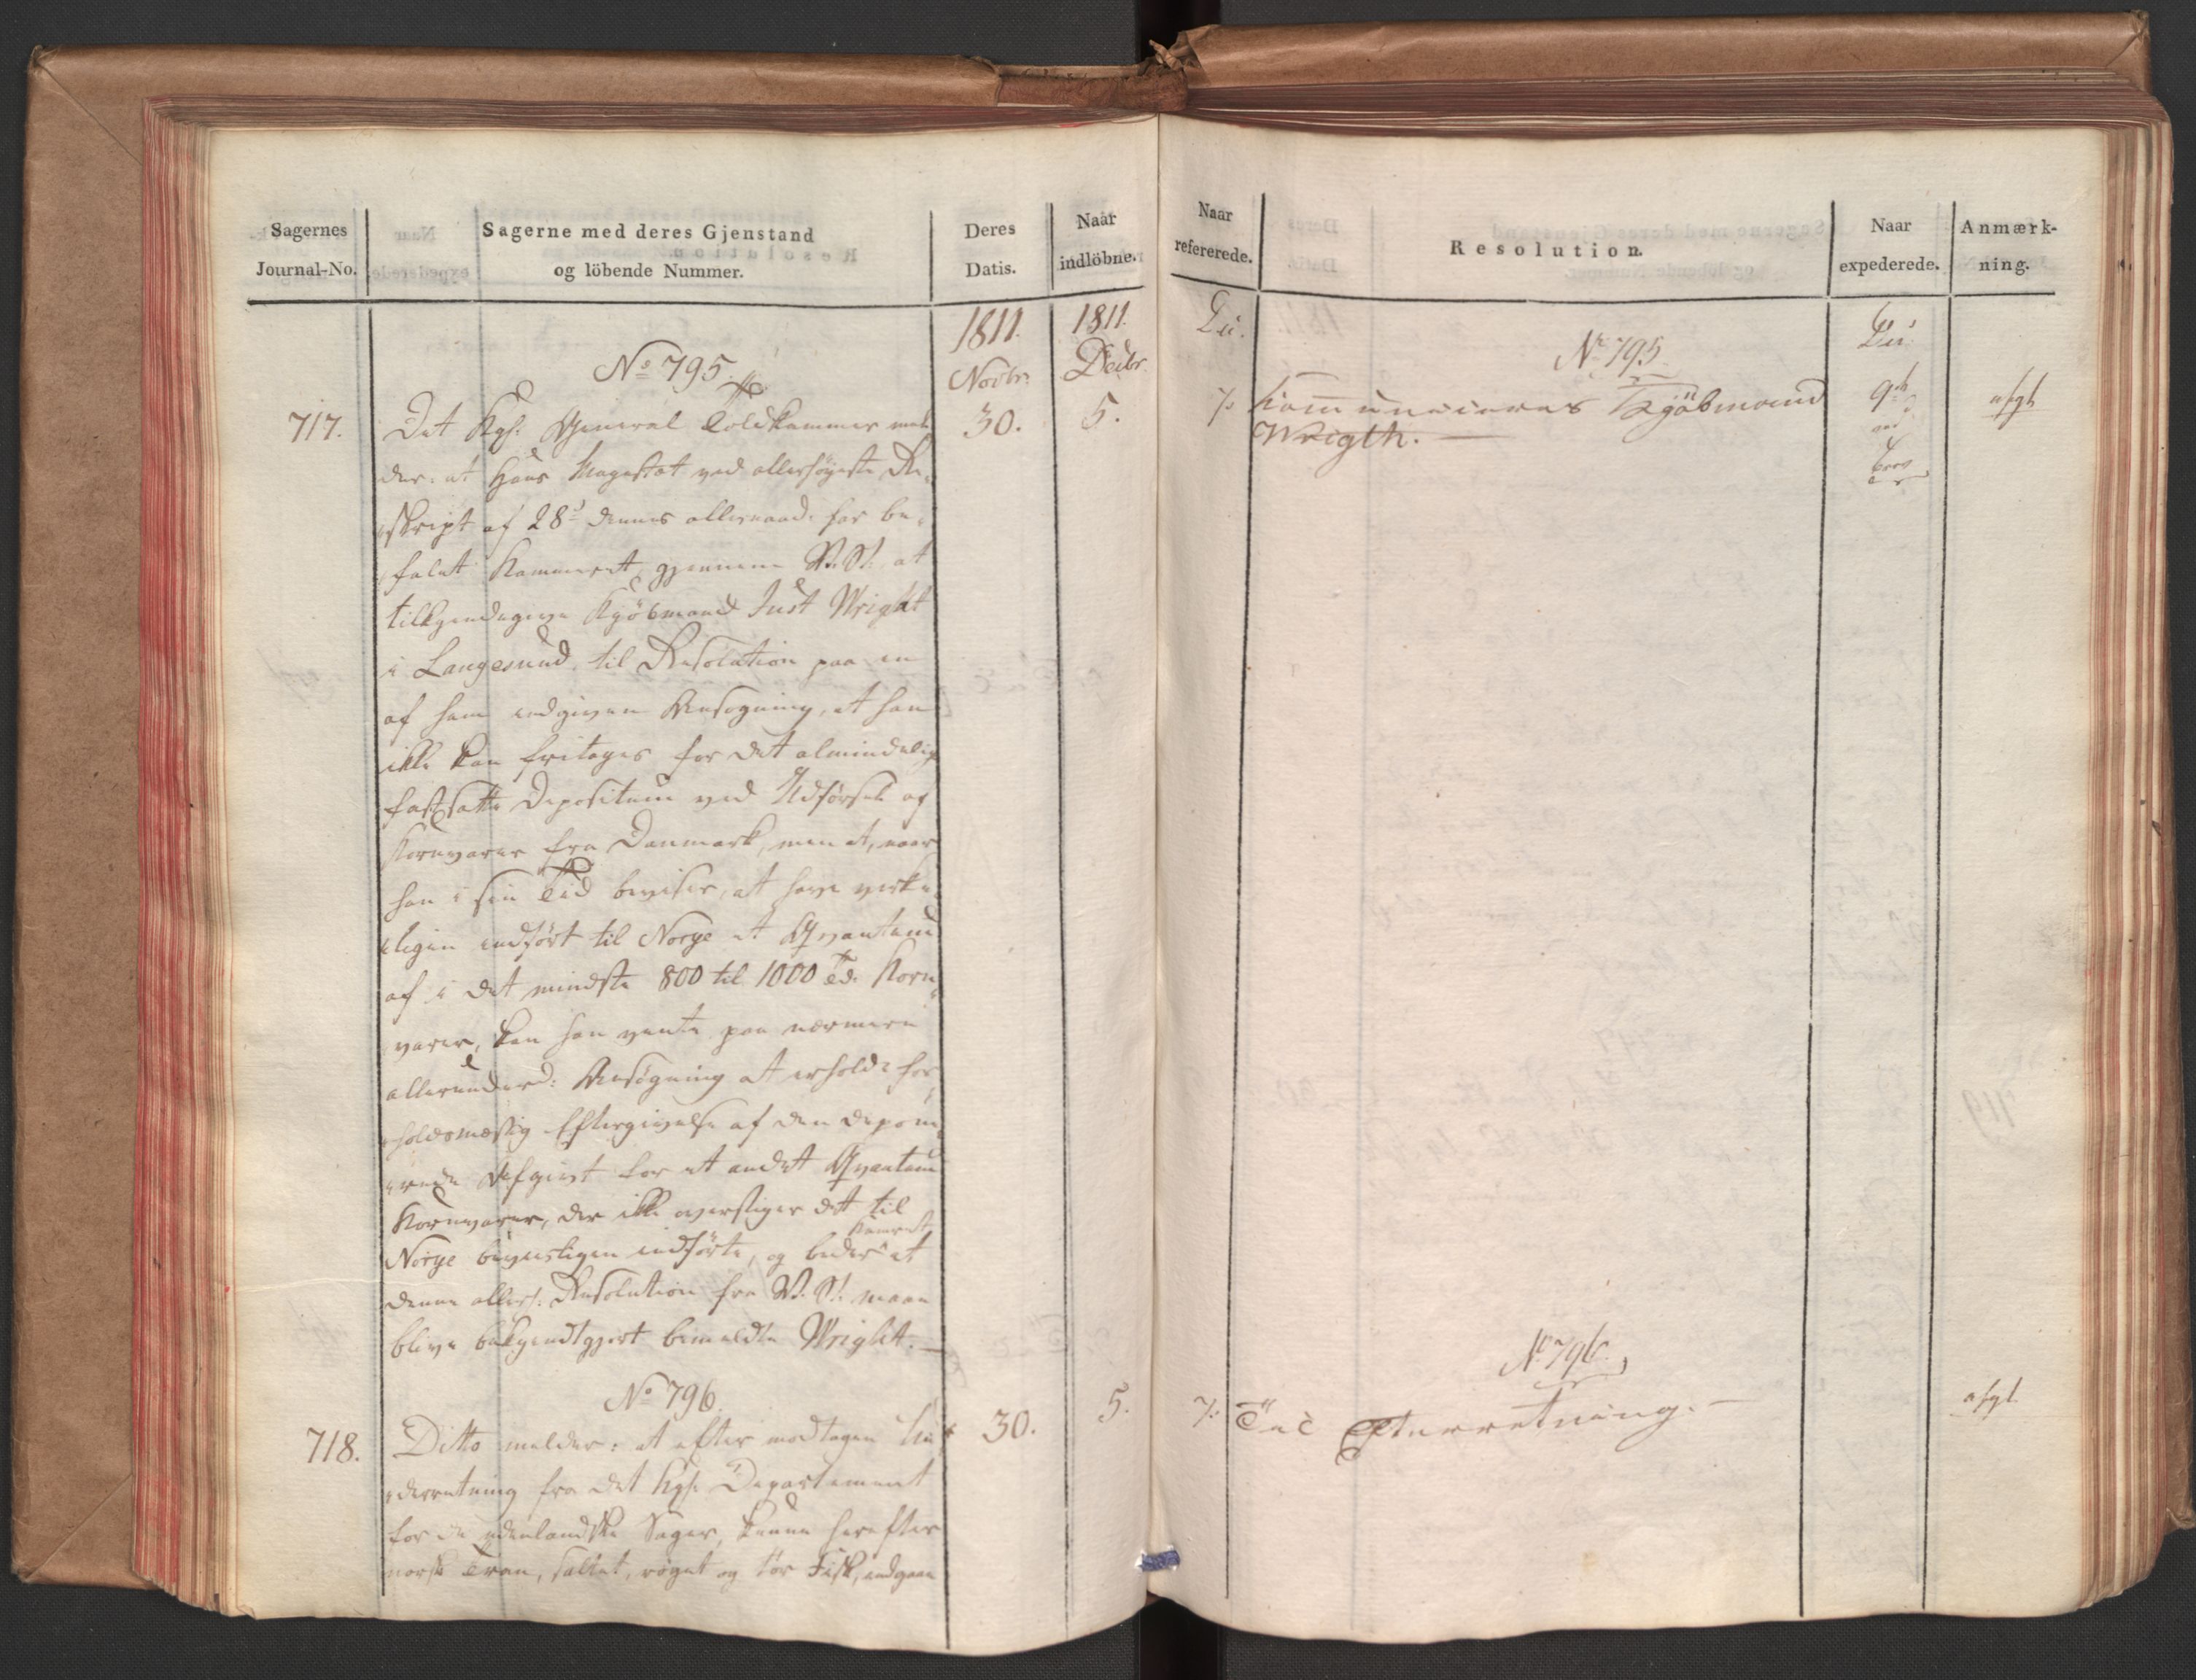 Sagernes
Journal-No.
Sagerne med deres Gjenstand
og löbende Nummer.
Deres
Datis.
Naar
indlöbne.
1811.
Novbr.
1811.
Decbr.
No 795.
717.
30.
5.
Det Kgl. General Toldkammer mel-
der: at Hans Majestæt ved allerhöyeste Re-
skript af 28d dennes allernaad. har be-
falet Kammeret, gjennem R. C. at
tilkjendegive Kjöbmand Just Wright
i Langesund, til Resolution paa en
af ham indgiven Ansögning, at han
ikke kan fritages for det almindelig
fastsatte Depositum ved Udförsel af
Kornvarer fra Danmark, men at, naar
han i sin Tid beviser, at have virke-
ligen indfört til Norge et Qvantum
af i det mindste 800 til 1000 Td. Korn-
varer, kan han vente paa nærmere
allerunderd: Ansögning at erholde for-
holdsmæssig Eftergivelse af den depone-
rede Afgivt for et andet Qvantum
Kornvarer, der ikke overstiger det til
Norge beviisligen indförte, og beder Kamret at
denne allerh: Resolution fra R. C. maae
blive bekjendtgjort bemeldte Wright. —
No 796.
718.
30.
5.
Ditto melder: at efter modtagen Un-
derretning fra det Kgl. Departement
for de udenlandske Sager, kunne herefter
norsk Tran, saltet, röget og tör Fisk, indgaae
Naar
refererede.
Resolution.
Naar
expederede.
Anmærk-
ning.
Du.
No 795
Du.
7.
Kommuniceres Kjöbmand
Wrigth. —
9d
ved
Brev
afgl.
No 796.
7.
Til Efterretning. —
afgl.